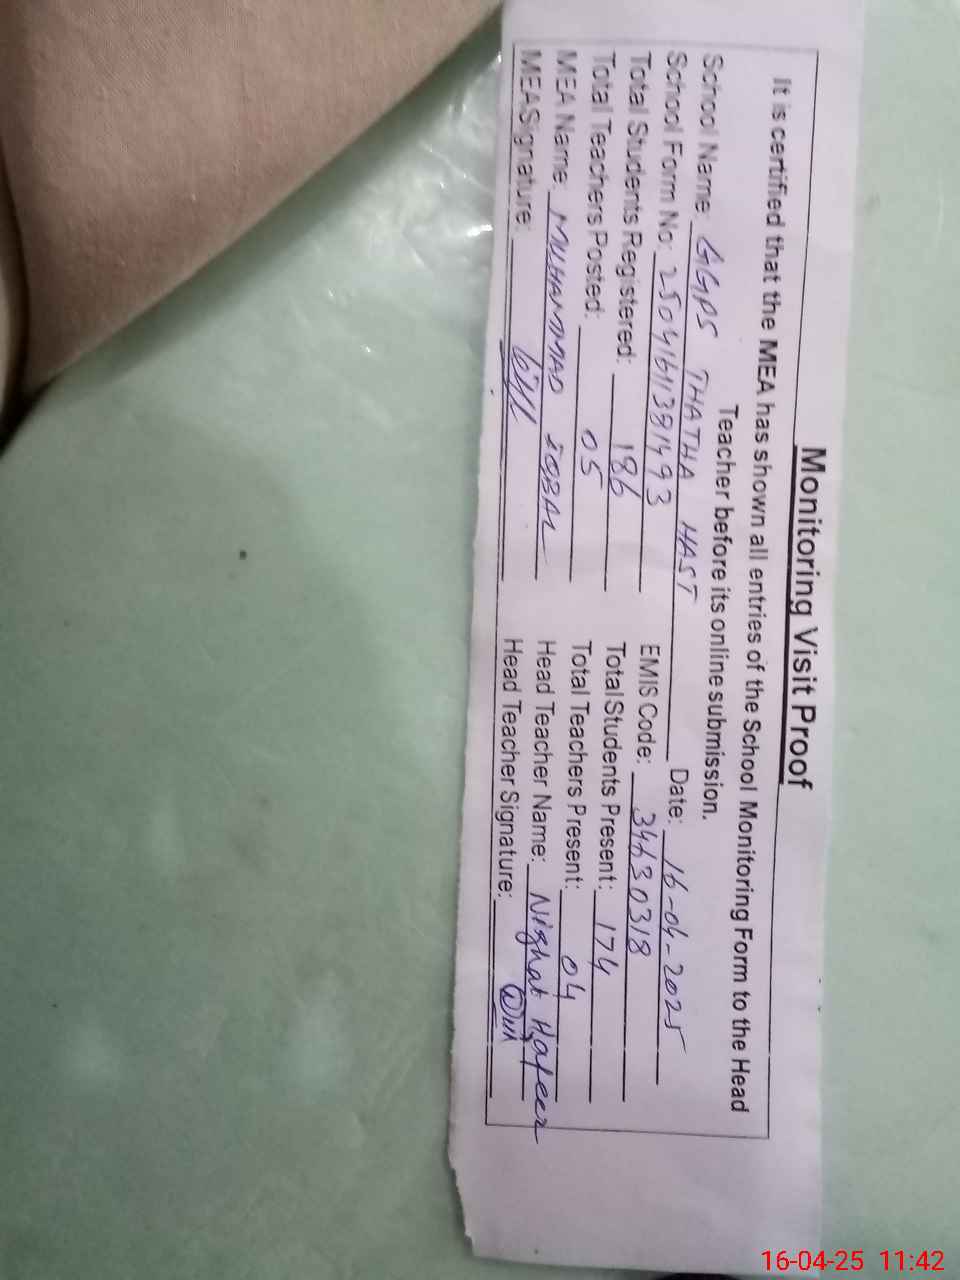 Monitoring Visit Proof
It is certified that the MEA has shown all entries of the School Monitoring Form to the Head
Teacher before its online submission.
School Name: GGPS THATHA HAST Date: 16-04-2025
School Form No: 25041611381493 EMIS Code: 34630318
Total Students Registered: 186 Total Students Present: 174
Total Teachers Posted: 05 Total Teachers Present: 04
MEA Name: MUHAMMAD IQBAL Head Teacher Name: Nighat Hafeez
MEA Signature: Head Teacher Signature:
16-04-25 11:42